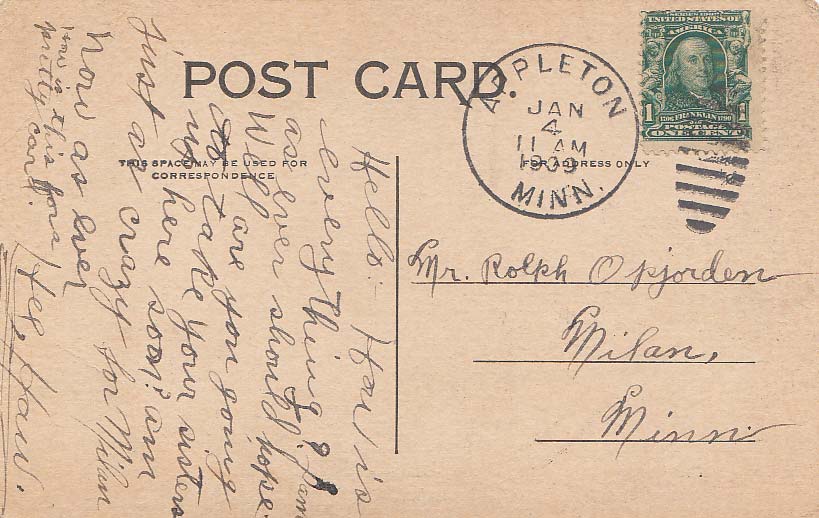 POST CARD.
THIS SPACE MAY BE USED FOR
CORRESPONDENCE
FOR ADDRESS ONLY
APPLETON
JAN
4
11 AM
1909
MINN.
SERIES 1902
UNITED STATES OF
AMERICA
1706 FRANKLIN 1790
1 1
POSTAGE
ONE CENT
Mr. Rolph Opjorden
Milan,
Minn
Hello:- How is
everything? I am
as ever should hope.
Well are you going
to take your sisters
up here soon? am
just as crazy for Milan
now as ever
How is this for a
pretty card.
Haw.